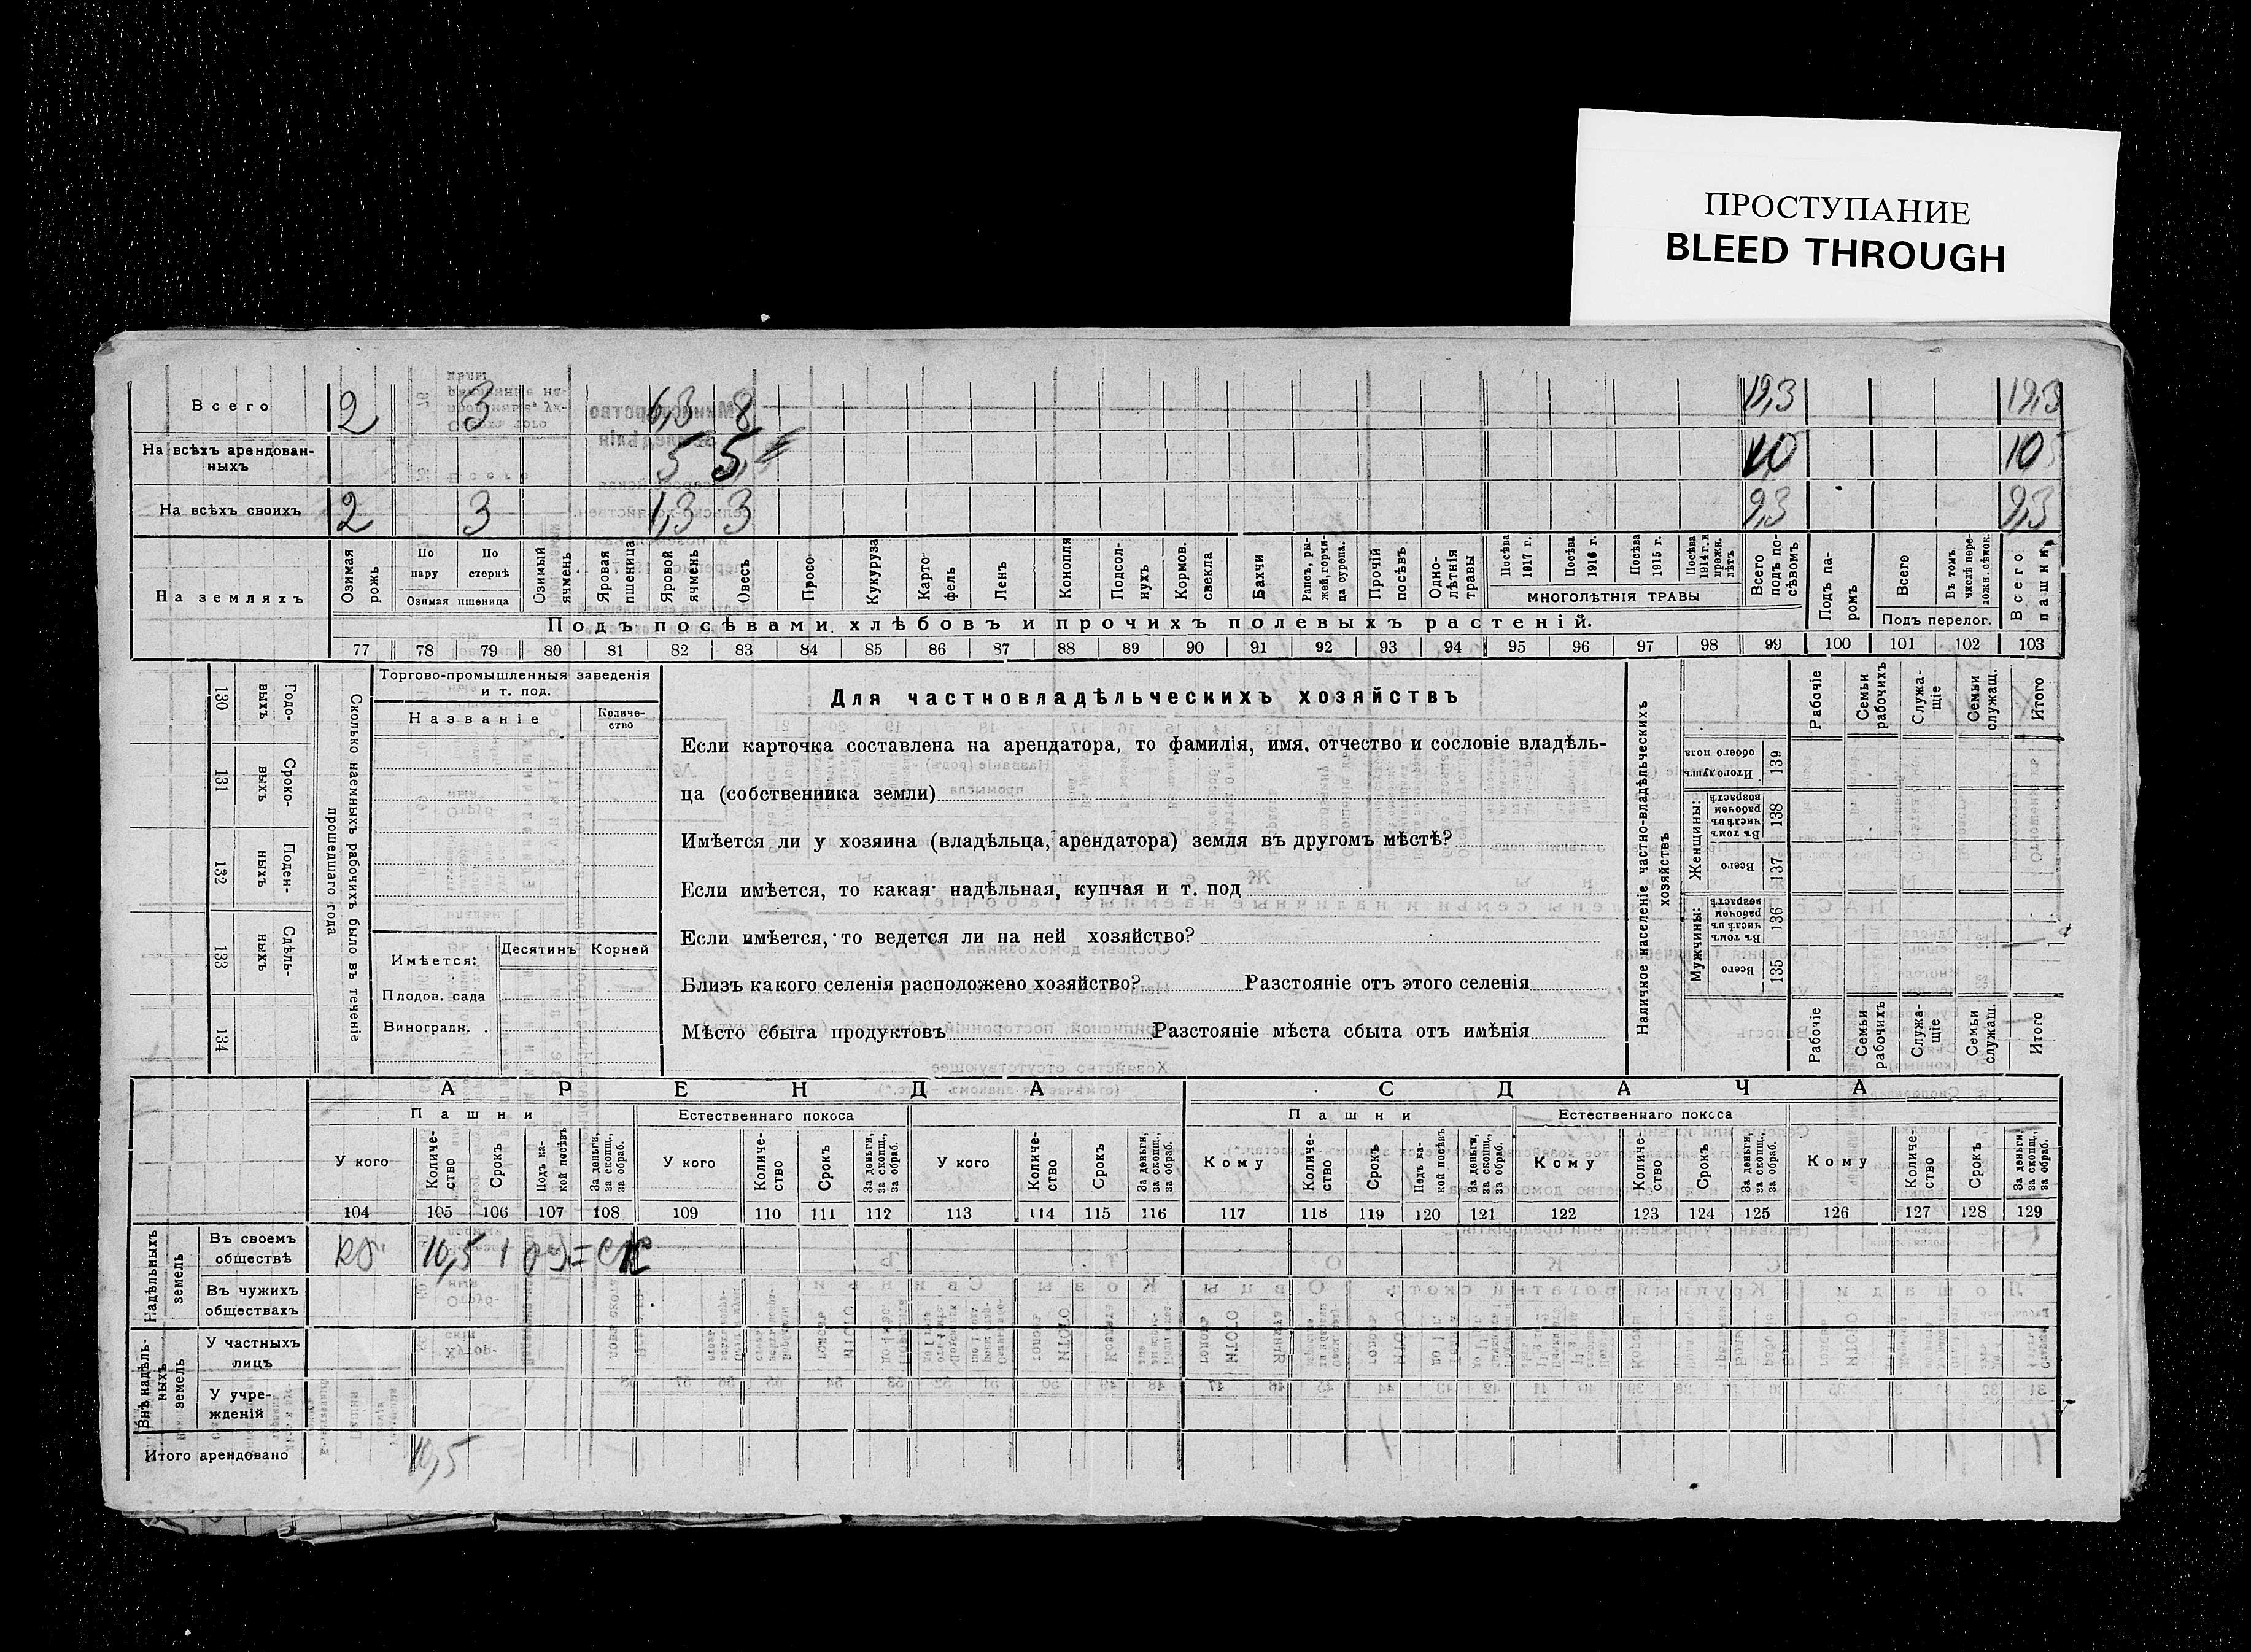 ПРОСТУПАНИЕ
BLEED THROUGH
Всего 2 3 6,3 8 19,3 19,3
На всѣхъ арендован-
ныхъ 5 5 10 10
На всѣхъ своихъ 2 3 1,3 3 9,3 9,3
На земляхъ
Озимая рожь
По пару
По стернѣ
Озимая пшеница
Озимый ячмень
Яровая пшеница
Яровой ячмень
Овесъ
Просо
Кукуруза
Карто фель
Ленъ
Конопля
Подсол- нухъ
Кормов. свекла
Бахчи
Рапсъ, ры- жей, горчи- ца сурепа.
Прочій посѣвъ
Одно- лѣтнія травы
Посѣва 1917 г.
Посѣва 1916 г.
Посѣва 1915 г.
Посѣва 1914 г. и прежн. лѣтъ
МНОГОЛѢТНІЯ ТРАВЫ
Всего подъ по- сѣвомъ
Подъ па- ромъ
Всего
Въ томъ числѣ пере- ложн. сѣнок.
Подъ перелог.
Всего пашни
Подъ посѣвами хлѣбовъ и прочихъ полевыхъ растеній.
77 78 79 80 81 82 83 84 85 86 87 88 89 90 91 92 93 94 95 96 97 98 99 100 101 102 103
130 Годо- выхъ
131 Сроко- выхъ
132 Поден- ныхъ
133 Сдѣль- ныхъ
134
Сколько наемныхъ рабочихъ было въ теченіе
прошедшаго года
Торгово-промышленныя заведенія
и т. под.
Названіе
Количе-
ство
Имѣется:
Десятинъ Корней
Плодов. сада
Виноградн.
Для частновладѣльческихъ хозяйствъ
Если карточка составлена на арендатора, то фамилія, имя, отчество и сословіе владѣль-
ца (собственника земли)
Имѣется ли у хозяина (владѣльца, арендатора) земля въ другомъ мѣстѣ?
Если имѣется, то какая надѣльная, купчая и т. под
Если имѣется, то ведется ли на ней хозяйство?
Близъ какого селенія расположено хозяйство? Разстояніе отъ этого селенія
Мѣсто сбыта продуктовъ Разстояніе мѣста сбыта отъ имѣнія
Наличное населеніе частно-владѣльческихъ
хозяйствъ
Рабочіе
Семьи рабочихъ
Служа- щіе
Семьи служащ.
Итого
Итого душъ обоего пола 139
Женщины:
Въ томъ числѣ въ рабочемъ возрастѣ 138
Всего 137
Мужчины:
Въ томъ числѣ въ рабочемъ возрастѣ 136
Всего 135
Рабочіе
Семьи рабочихъ
Служа- щіе
Семьи служащ.
Итого
АРЕНДА СДАЧА
Пашни Естественнаго покоса Пашни Естественнаго покоса
У кого
Количе- ство
Срокъ
Подъ ка- кой посѣвъ
За деньги, за скопщ., за обраб.
У кого
Количе- ство
Срокъ
За деньги, за скопщ., за обраб.
У кого
Количе- ство
Срокъ
За деньги, за скопщ., за обраб.
Кому
Количе- ство
Срокъ
Подъ ка- кой посѣвъ
За деньги, за скопщ., за обраб.
Кому
Количе- ство
Срокъ
За деньги, за скопщ., за обраб.
Кому
Количе- ство
Срокъ
За деньги, за скопщ., за обраб.
104 105 106 107 108 109 110 111 112 113 114 115 116 117 118 119 120 121 122 123 124 125 126 127 128 129
Надѣльныхъ земель
Въ своемъ
обществѣ 10,5 1
Въ чужихъ
обществахъ
Внѣ надѣль- ныхъ земель
У частныхъ
лицъ
У учре-
жденій
Итого арендовано 10,5